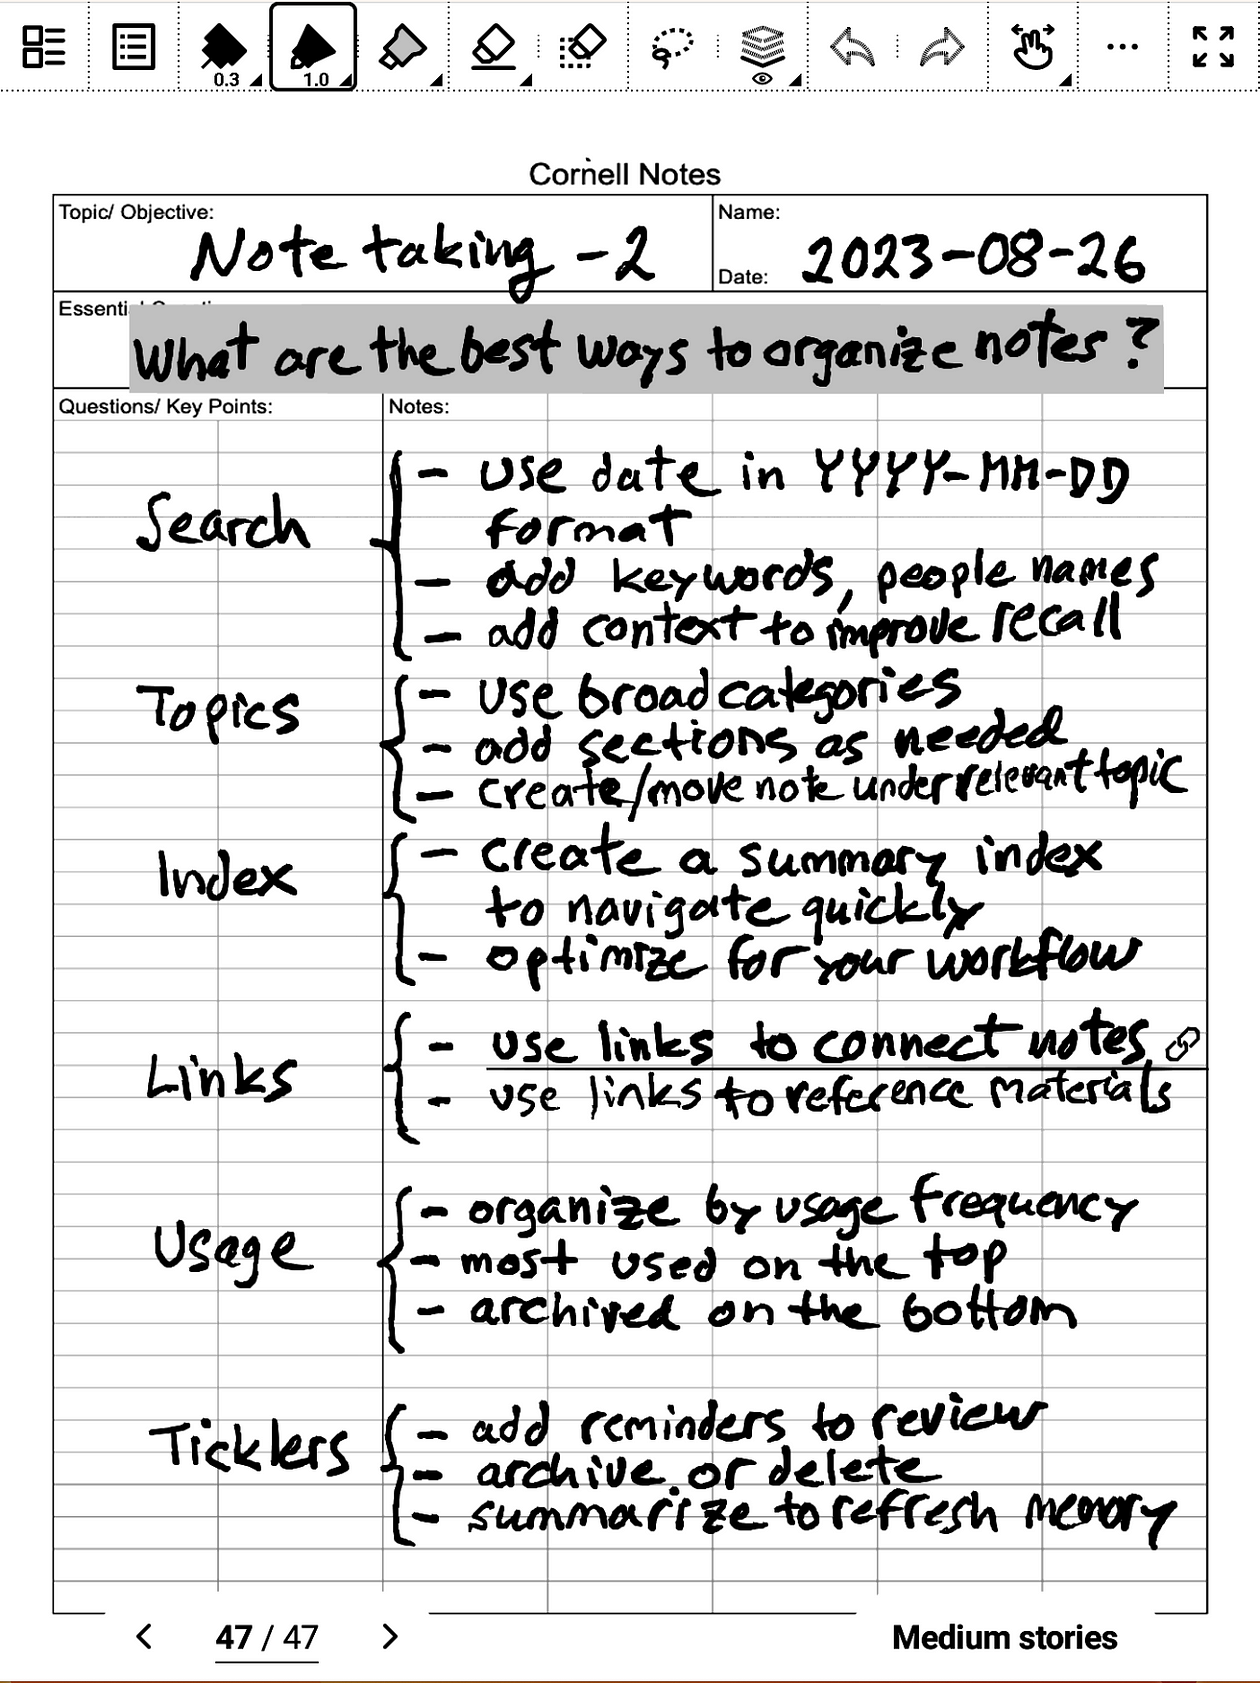 0.3
1.0
Cornell Notes
Topic/ Objective:
Note taking - 2
Name:
Date: 2023-08-26
What are the best ways to organize notes?
Questions/ Key Points:
Notes:
Search
- use date in YYYY-MM-DD
format
- add keywords, people names
- add context to improve recall
Topics
- use broad categories
- add sections as needed
- create/move note under relevant topic
Index
- create a summary index
to navigate quickly
- optimize for your workflow
Links
- use links to connect notes
- use links to reference materials
Usage
- organize by usage frequency
- most used on the top
- archived on the bottom
Ticklers
- add reminders to review
- archive or delete
- summarize to refresh memory
47 / 47
Medium stories